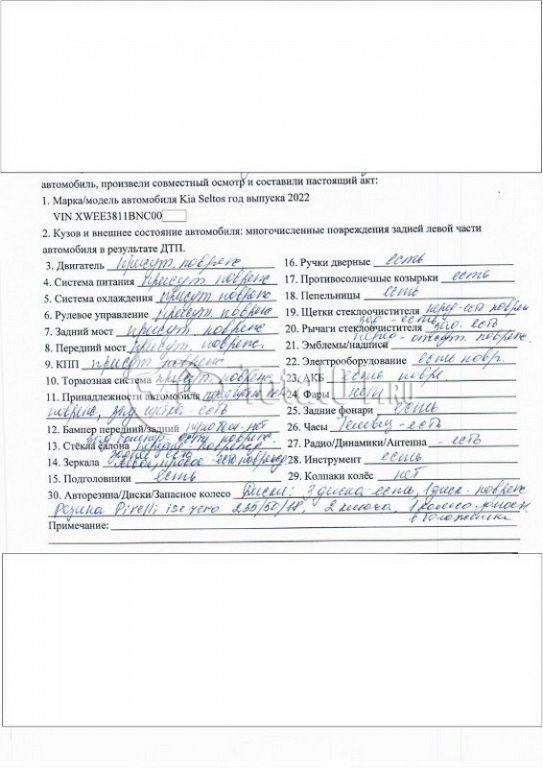 автомобиль, произвели совместный осмотр и составили настоящий акт:
1. Марка/модель автомобиля Kia Seltos год выпуска 2022
VIN XWEE3811BNC00
2. Кузов и внешнее состояние автомобиля: многочисленные повреждения задней левой части
автомобиля в результате ДТП.
3. Двигатель присут. повренс
4. Система питания присут повренс
5. Система охлаждения присут повренс
6. Рулевое управление присут повренс
7. Задний мост присут повренс
8. Передний мост присут. повренс.
9. КПП присут повренс
10. Тормозная система присут повренс
11. Принадлежности автомобиль
повренс, есть
12. Бампер передний/задний нет
зад бампер есть повренс.
13. Стёкла салона
14. Зеркала есть
15. Подголовники есть
16. Ручки дверные есть
17. Противосолнечные козырьки есть
18. Пепельницы есть
19. Щетки стеклоочистителя перед-есть
зад - есть
20. Рычаги стеклоочистителя зад. есть
21. Эмблемы/надписи
22. Электрооборудование есть повр.
23. АКБ есть повре.
24. Фары
25. Задние фонари есть
26. Часы - есть
27. Радио/Динамики/Антенна - есть
28. Инструмент есть
29. Колпаки колёс нет
30. Авторезина/Диски/Запасное колесо Диски: 3 диска есть, 1 диск повренс
Резина Pirelli ice zero 235/50/18, 2 ключа, 1 колесо
Примечание: